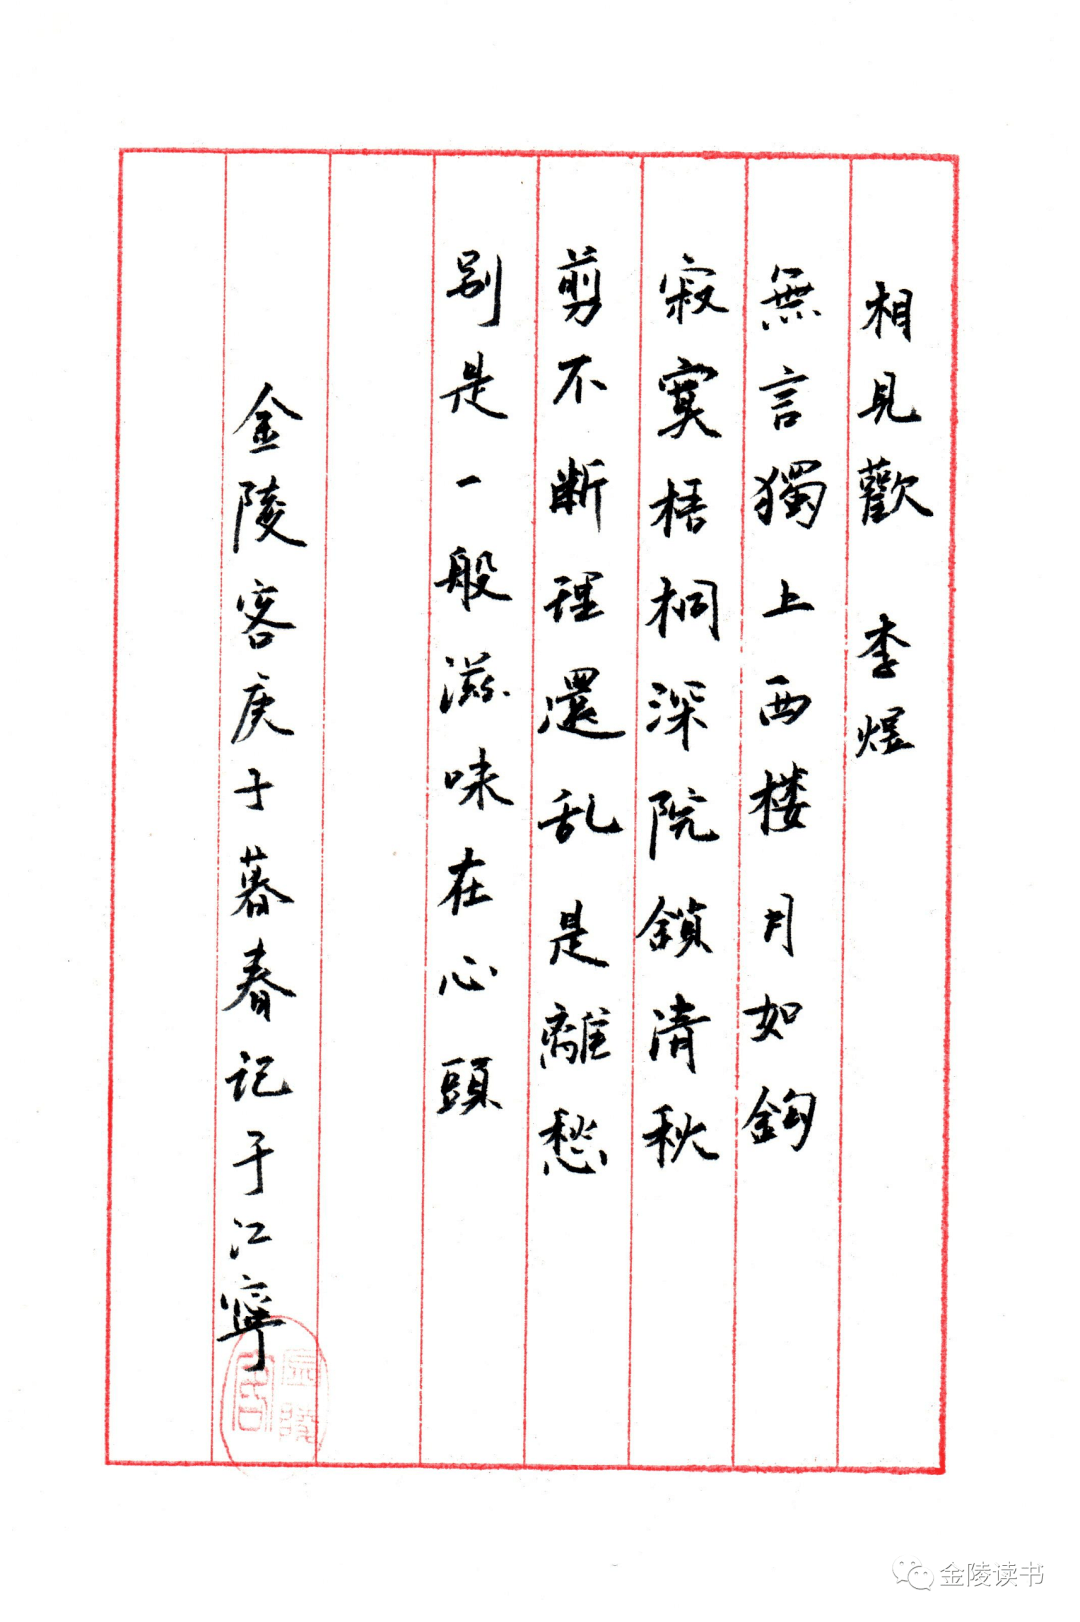 相見歡 李煜
無言獨上西楼月如鈎
寂寞梧桐深院鎖清秋
剪不断理還乱是離愁
别是一般滋味在心頭
金陵客庚子暮春记于江寧
金陵客
金陵读书